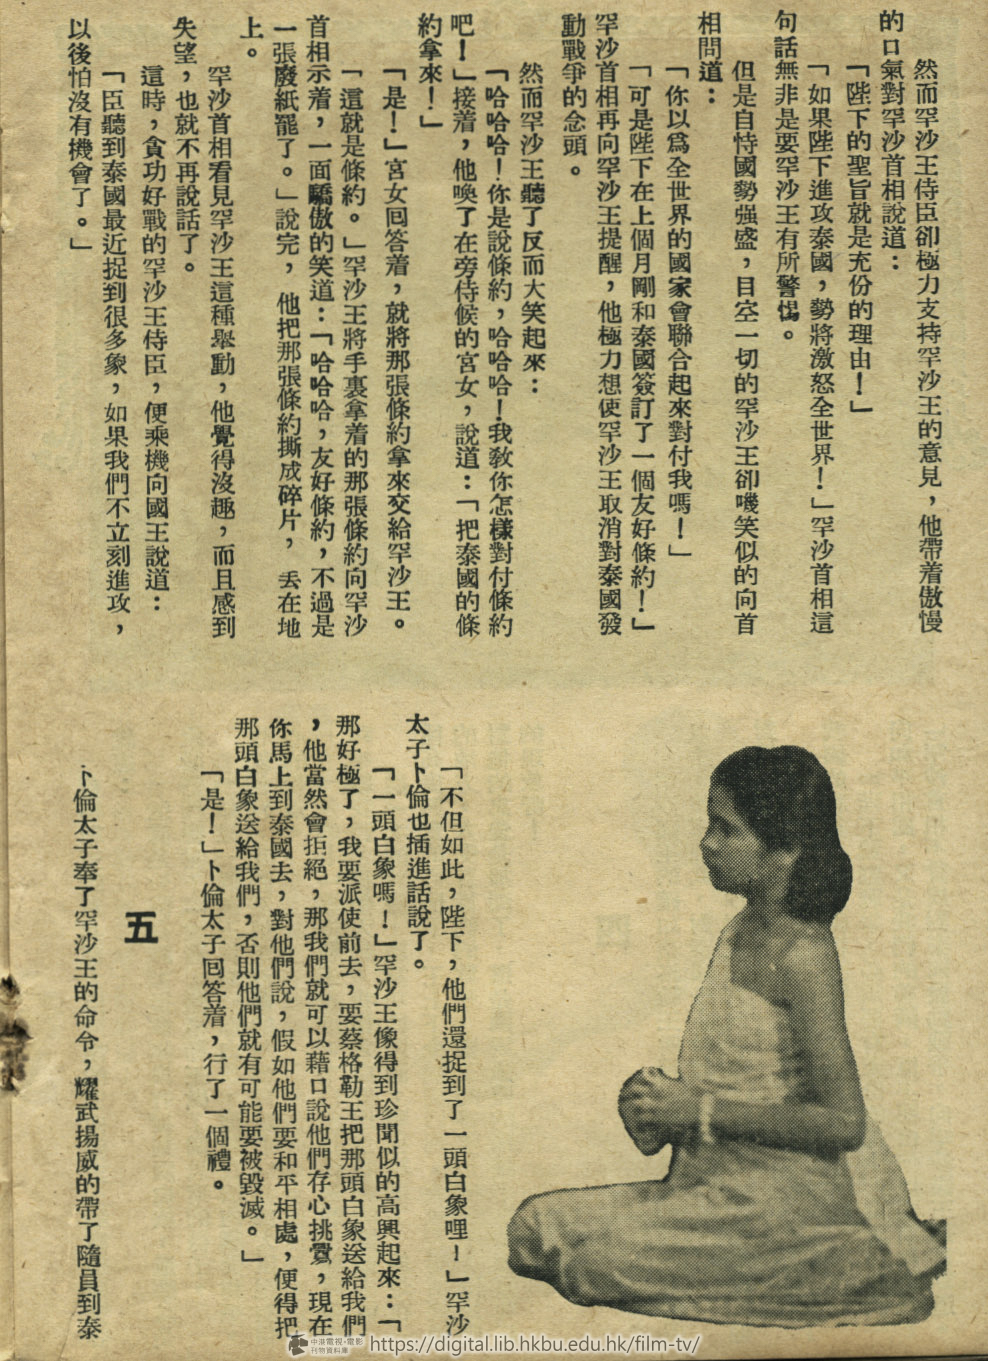 然而罕沙王侍臣卻極力支持罕沙王的意見，他帶着傲慢
的口氣對罕沙首相說道：
「陛下的聖旨就是充份的理由！」
「如果陛下進攻泰國，勢將激怒全世界！」罕沙首相這
句話無非是要罕沙王有所警惕。
但是自恃國勢强盛，目空一切的罕沙王卻嘰笑似的向首
相問道：
「你以爲全世界的國家會聯合起來對付我嗎！」
「可是陛下在上個月剛和泰國簽訂了一個友好條約！」
罕沙首相再向罕沙王提醒，他極力想使罕沙王取消對泰國發
動戰爭的念頭。
然而罕沙王聽了反而大笑起來：
「哈哈哈！你是說條約，哈哈哈！我教你怎樣對付條約
吧！」接着，他喚了在旁侍候的宮女，說道：「把泰國的條
約拿來！」
「是！」宮女囘答着，就將那張條約拿來交給罕沙王。
「這就是條約。」罕沙王將手裏拿着的那張條約向罕沙
首相示着，一面驕傲的笑道：「哈哈哈，友好條約，不過是
一張廢紙罷了。」說完，他把那張條約撕成碎片，丢在地
上。
罕沙首相看見罕沙王這種舉動，他覺得沒趣，而且感到
失望，也就不再說話了。
這時，貪功好戰的罕沙王侍臣，便乘機向國王說道：
「臣聽到泰國最近捉到很多象，如果我們不立刻進攻，
以後怕沒有機會了。」
「不但如此，陛下，他們還捉到了一頭白象哩！」罕沙
太子卜倫也插進話說了。
「一頭白象嗎！」罕沙王像得到珍聞似的高興起來：「
那好極了，我要派使前去，要蔡格勒王把那頭白象送給我們
，他當然會拒絕，那我們就可以藉口說他們存心挑釁，現在
你馬上到泰國去，對他們說，假如他們要和平相處，便得把
那頭白象送給我們，否則他們就有可能要被毀滅。」
「是！」卜倫太子囘答着，行了一個禮。
五
卜倫太子奉了罕沙王的命令，耀武揚威的帶了隨員到泰
中港電視·電影
刊物資料庫
https://digital.lib.hkbu.edu.hk/film-tv/